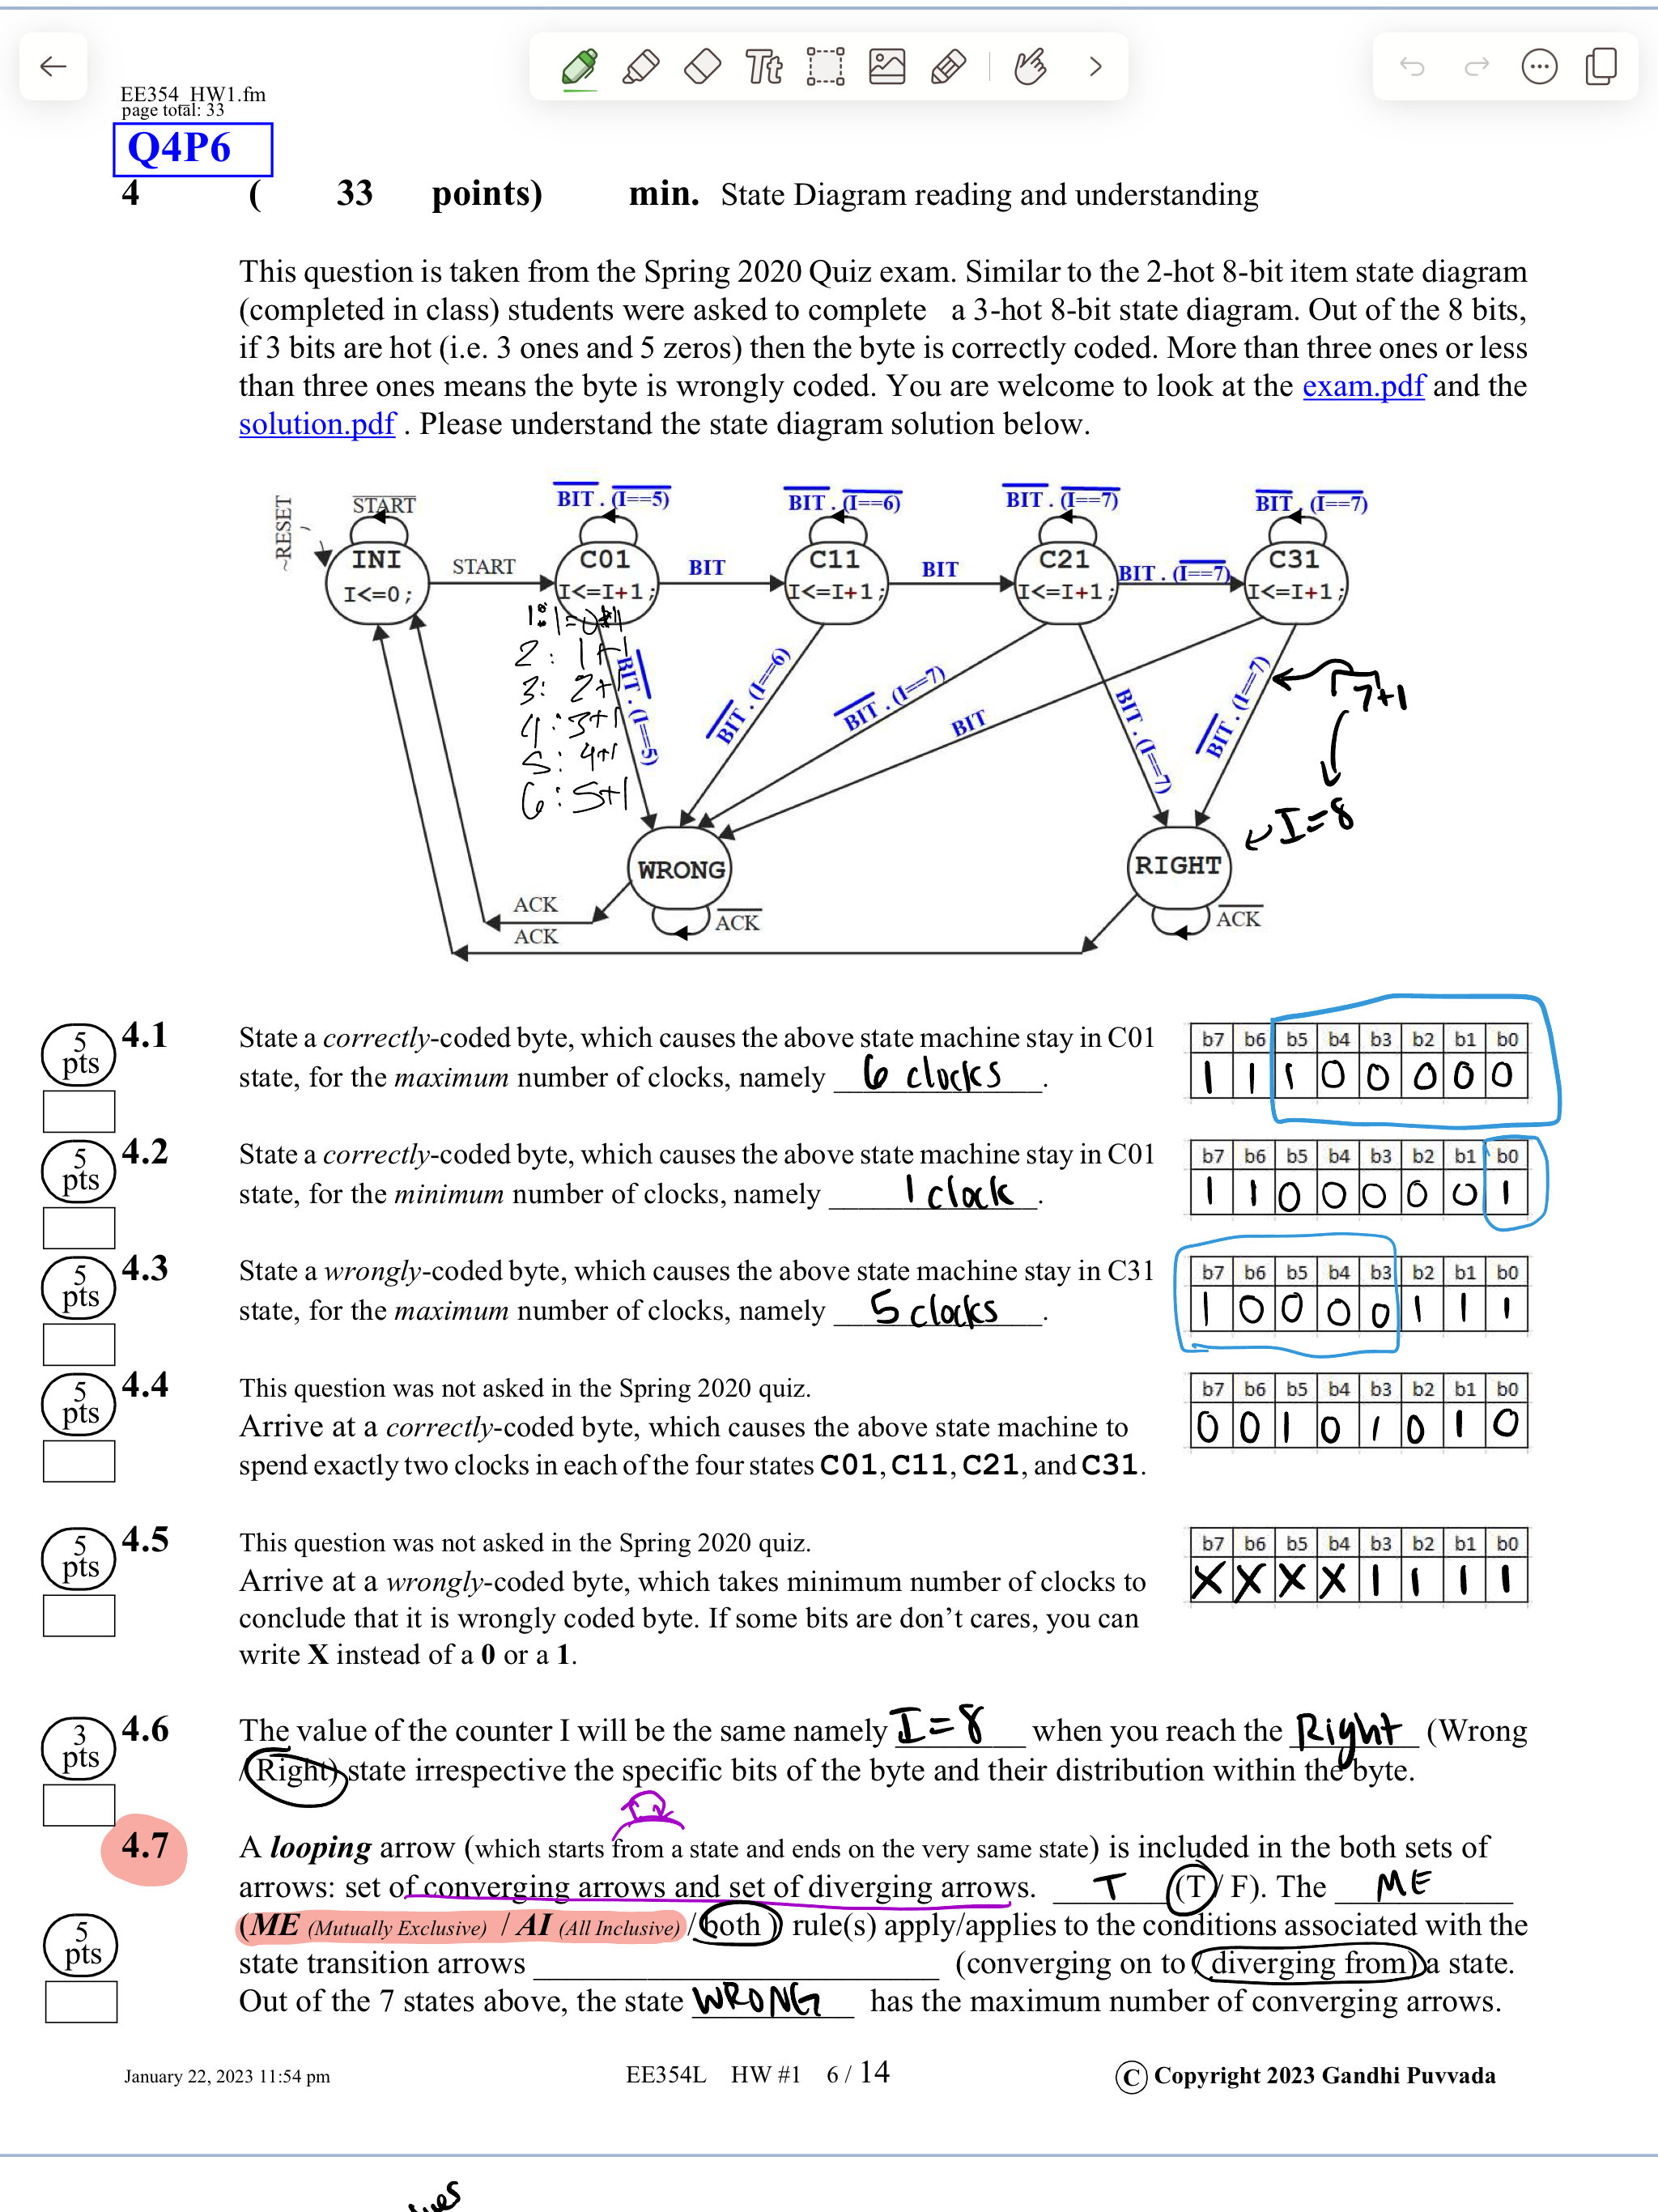 Tt
EE354_HW1.fm
page total: 33
Q4P6
4 ( 33 points) min. State Diagram reading and understanding
This question is taken from the Spring 2020 Quiz exam. Similar to the 2-hot 8-bit item state diagram
(completed in class) students were asked to complete a 3-hot 8-bit state diagram. Out of the 8 bits,
if 3 bits are hot (i.e. 3 ones and 5 zeros) then the byte is correctly coded. More than three ones or less
than three ones means the byte is wrongly coded. You are welcome to look at the exam.pdf and the
solution.pdf . Please understand the state diagram solution below.
~RESET
START
BIT . (I==5)
BIT . (I==6)
BIT . (I==7)
BIT . (I==7)
INI
I<=0;
START
C01
I<=I+1;
BIT
C11
I<=I+1;
BIT
C21
I<=I+1;
BIT . (I==7)
C31
I<=I+1;
2: 1+1
3: 2+1
4: 3+1
5: 4+1
6: 5+1
BIT . (I==5)
BIT . (I==6)
BIT . (I==7)
BIT
BIT . (I==7)
BIT . (I==7)
7+1
I=8
WRONG
RIGHT
ACK
ACK
ACK
ACK
5 pts
4.1 State a correctly-coded byte, which causes the above state machine stay in C01
state, for the maximum number of clocks, namely 6 clocks.
b7 b6 b5 b4 b3 b2 b1 b0
1 1 1 0 0 0 0 0
5 pts
4.2 State a correctly-coded byte, which causes the above state machine stay in C01
state, for the minimum number of clocks, namely 1 clock.
b7 b6 b5 b4 b3 b2 b1 b0
1 1 0 0 0 0 0 1
5 pts
4.3 State a wrongly-coded byte, which causes the above state machine stay in C31
state, for the maximum number of clocks, namely 5 clocks.
b7 b6 b5 b4 b3 b2 b1 b0
1 0 0 0 0 1 1 1
5 pts
4.4 This question was not asked in the Spring 2020 quiz.
Arrive at a correctly-coded byte, which causes the above state machine to
spend exactly two clocks in each of the four states C01, C11, C21, and C31.
b7 b6 b5 b4 b3 b2 b1 b0
0 0 1 0 1 0 1 0
5 pts
4.5 This question was not asked in the Spring 2020 quiz.
Arrive at a wrongly-coded byte, which takes minimum number of clocks to
conclude that it is wrongly coded byte. If some bits are don't cares, you can
write X instead of a 0 or a 1.
b7 b6 b5 b4 b3 b2 b1 b0
X X X X 1 1 1 1
3 pts
4.6 The value of the counter I will be the same namely I=8 when you reach the Right (Wrong
/ Right) state irrespective the specific bits of the byte and their distribution within the byte.
4.7 A looping arrow (which starts from a state and ends on the very same state) is included in the both sets of
arrows: set of converging arrows and set of diverging arrows. T (T/ F). The ME
(ME (Mutually Exclusive) / AI (All Inclusive) / both ) rule(s) apply/applies to the conditions associated with the
5 pts
state transition arrows (converging on to / diverging from) a state.
Out of the 7 states above, the state WRONG has the maximum number of converging arrows.
January 22, 2023 11:54 pm EE354L HW #1 6 / 14 C Copyright 2023 Gandhi Puvvada